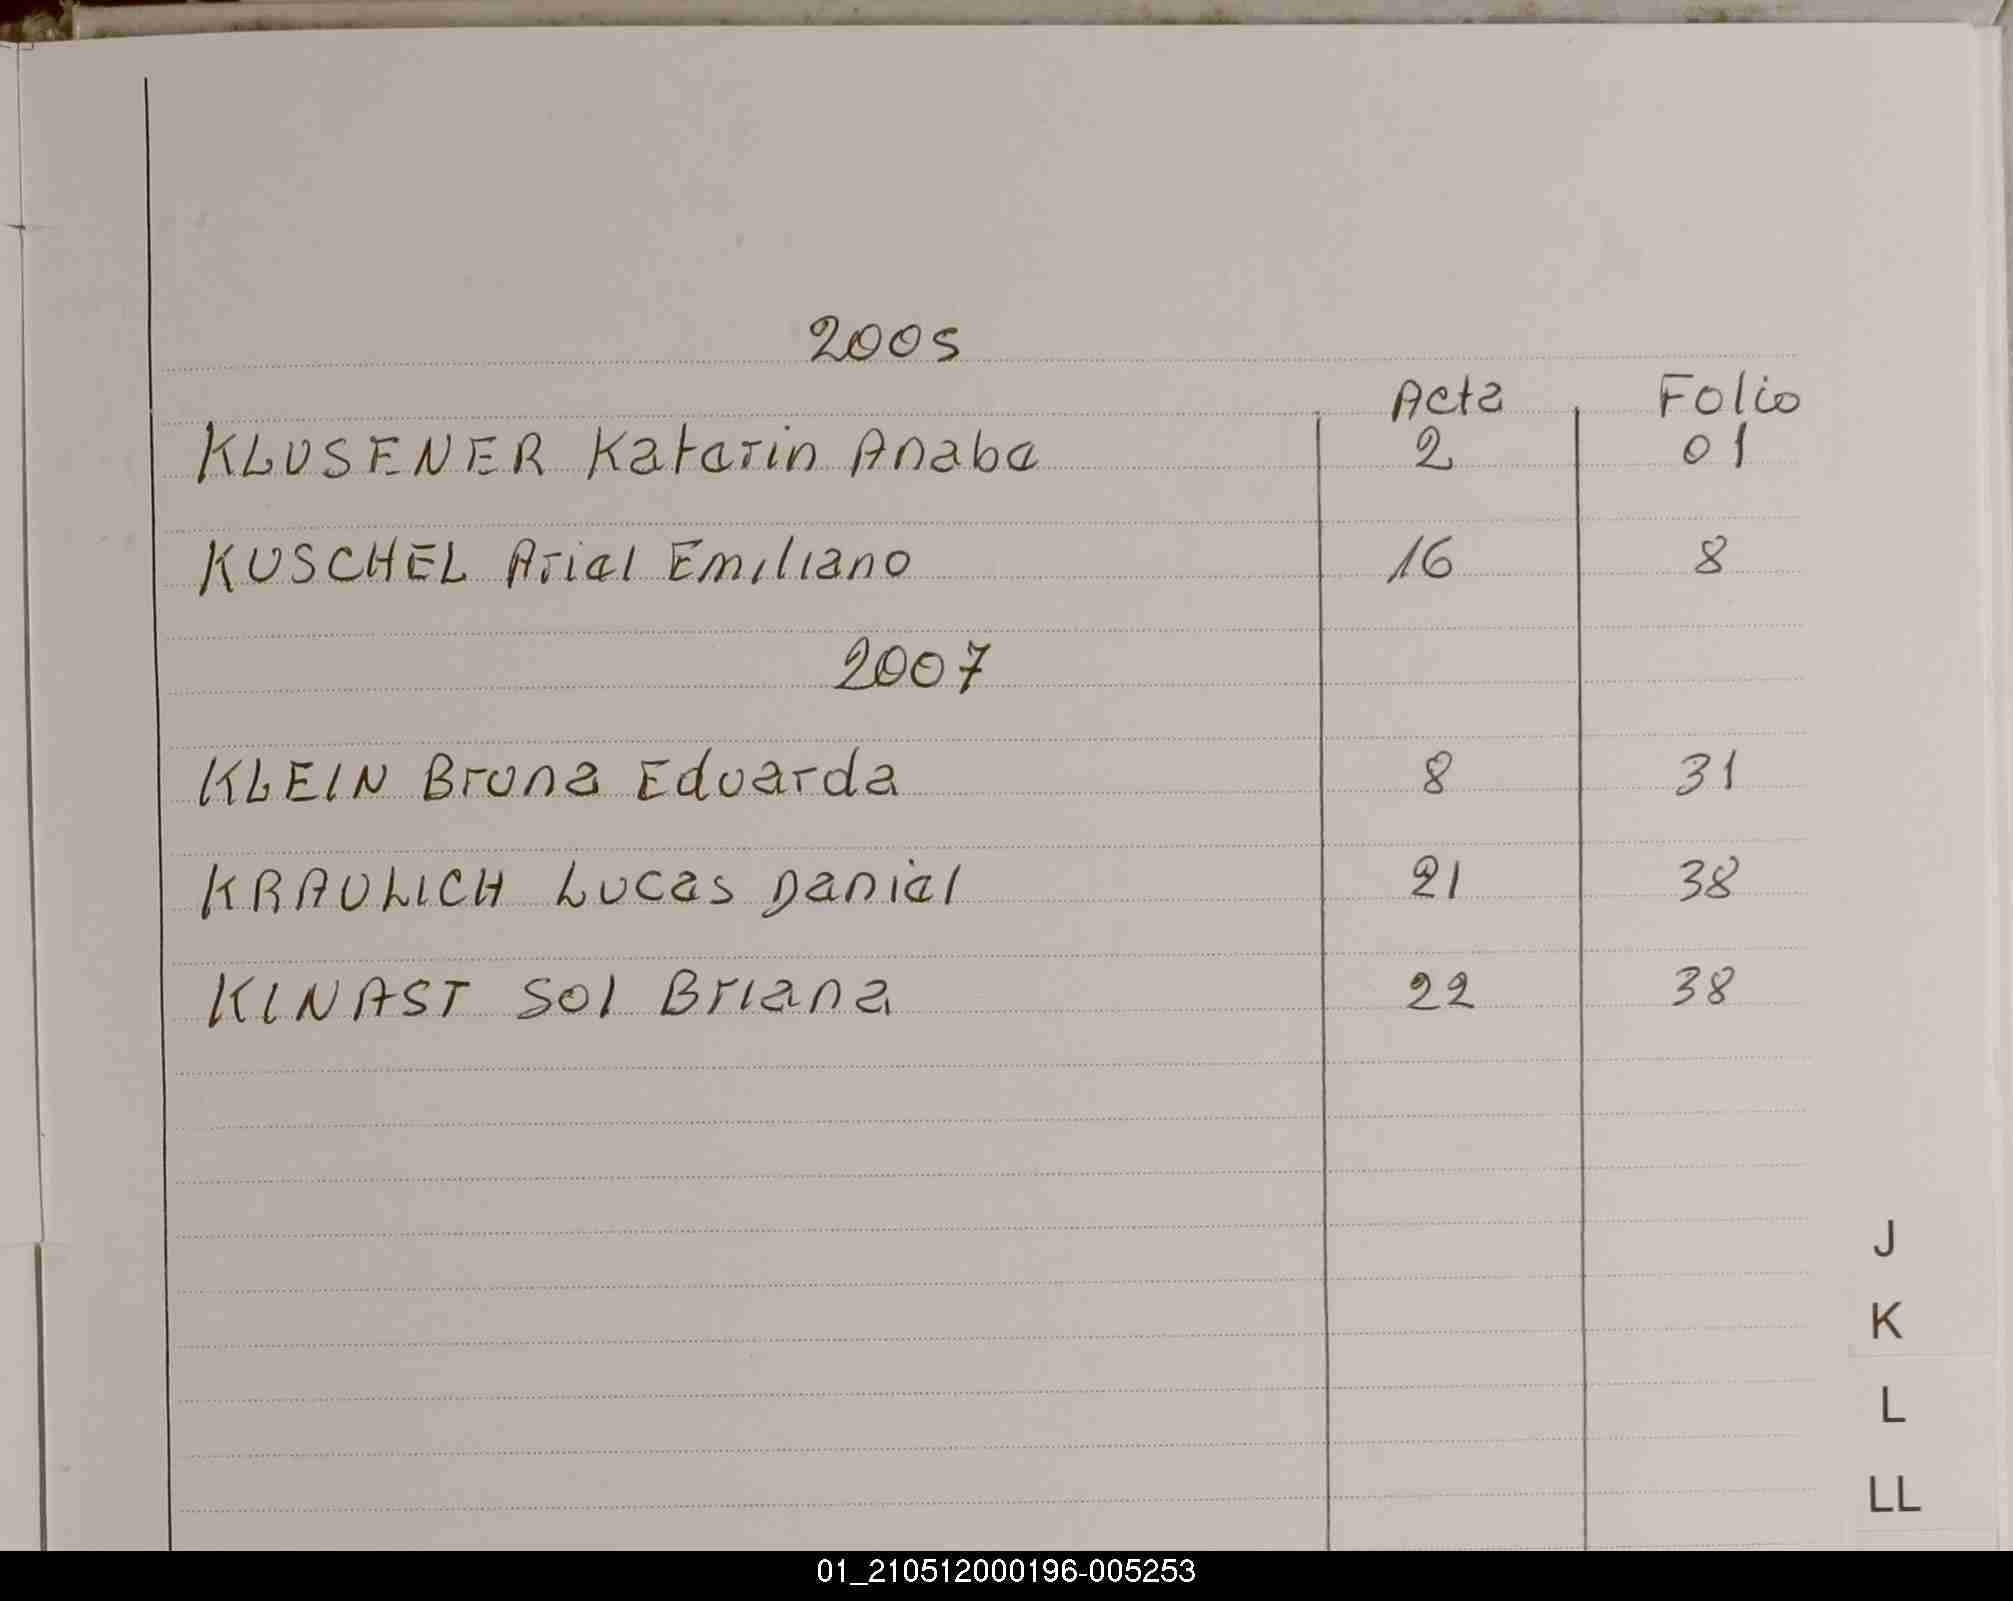 2005
Acta Folio
KLUSENER Katerin Anabe 2 01
KUSCHEL Ariel Emiliano 16 8
2007
KLEIN Bruna Eduarda 8 31
KRAULICH Lucas Daniel 21 38
KINAST Sol Briana 22 38
J
K
L
LL
01_210512000196-005253